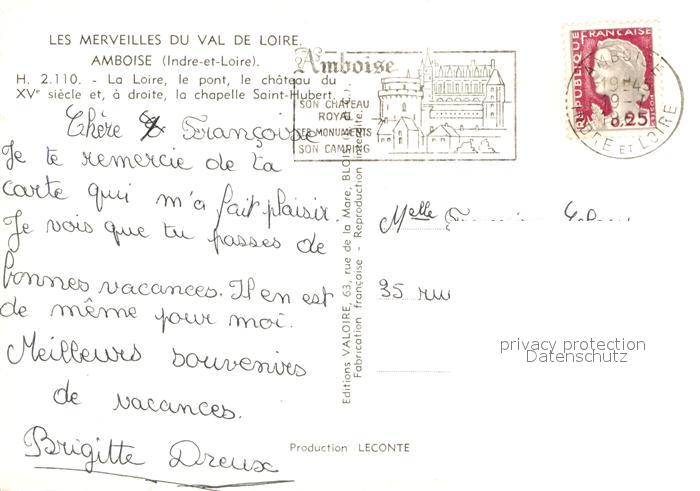 LES MERVEILLES DU VAL DE LOIRE
AMBOISE (Indre-et-Loire).
H. 2.110. - La Loire, le pont, le château du
XVe siècle et, à droite, la chapelle Saint-Hubert.
Chère Françoise
Je te remercie de ta
carte qui m'a fait plaisir.
Je vois que tu passes de
bonnes vacances. Il en est
de même pour moi.
Meilleurs souvenirs
de vacances.
Brigitte Dreux
Amboise
SON CHATEAU
ROYAL
SES MONUMENTS
SON CAMPING
REPUBLIQUE
FRANÇAISE
0,25
AMBOISE
19H45
INDRE ET LOIRE
Editions VALOIRE, 63, rue de la Mare, BLOIS
Fabrication française - Reproduction interdite
Melle
35 rue
privacy protection
Datenschutz
Production LECONTE